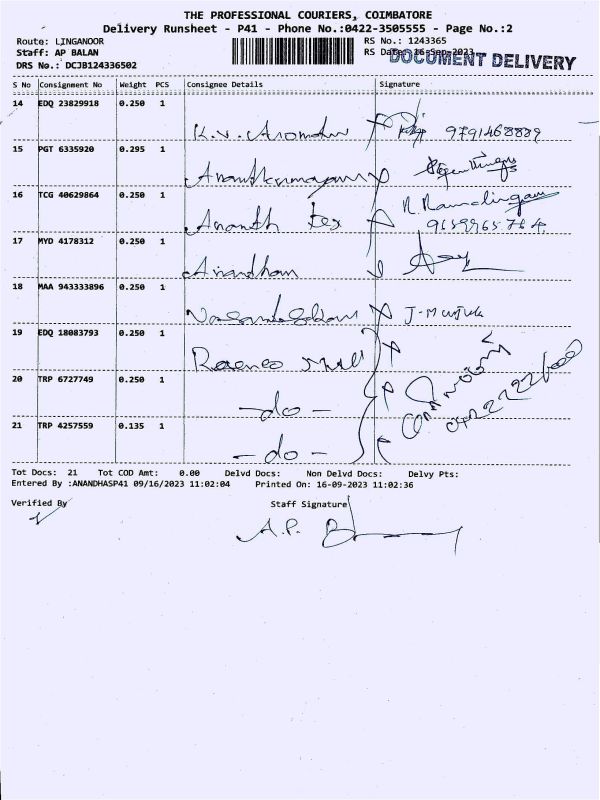 THE PROFESSIONAL COURIERS, COIMBATORE
Delivery Runsheet - P41 - Phone No.:0422-3505555 - Page No.:2
Route: LINGANOOR
RS No.: 1243365
Staff: AP BALAN
RS Date: 16-Sep-2023
DOCUMENT DELIVERY
DRS No.: DCJB124336502
S No Consignment No Weight PCS Consignee Details Signature
14 EDQ 23829918 0.250 1
K.V. 9791468889
15 PGT 6335920 0.295 1
16 TCG 40629864 0.250 1
Ananth Tex R. Ramalingam
9659965764
17 MYD 4178312 0.250 1
Anandham
18 MAA 943333896 0.250 1
J-Manjula
19 EDQ 18083793 0.250 1
Mill
20 TRP 6727749 0.250 1
-do-
21 TRP 4257559 0.135 1
-do-
Tot Docs: 21 Tot COD Amt: 0.00 Delvd Docs: Non Delvd Docs: Delvy Pts:
Entered By :ANANDHASP41 09/16/2023 11:02:04 Printed On: 16-09-2023 11:02:36
Verified By Staff Signature
A.P.